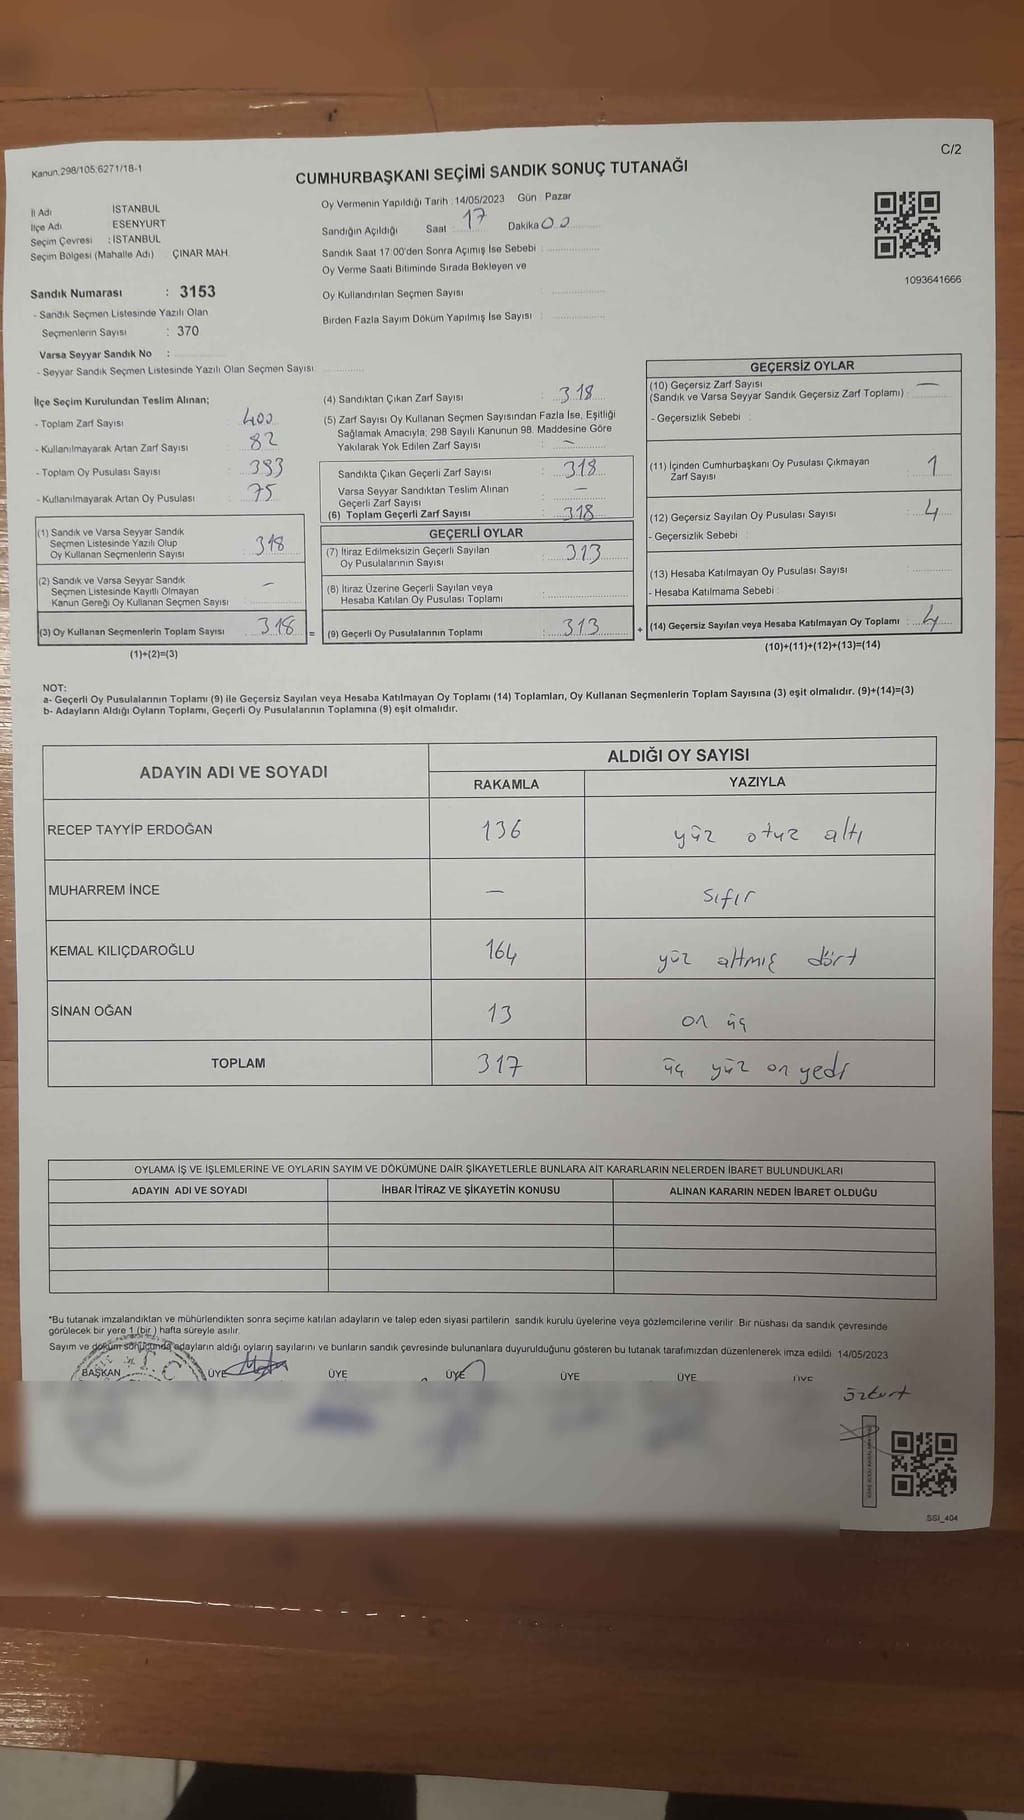 C/2
Kanun.298/105:6271/18-1
CUMHURBAŞKANI SEÇİMİ SANDIK SONUÇ TUTANAĞI
İl Adı İSTANBUL
İlçe Adı ESENYURT
Seçim Çevresi : İSTANBUL
Seçim Bölgesi (Mahalle Adı) ÇINAR MAH
Oy Vermenin Yapıldığı Tarih : 14/05/2023 Gün : Pazar
Sandığın Açıldığı Saat 17 Dakika 00
Sandık Saat 17:00'den Sonra Açımış İse Sebebi :
Oy Verme Saati Bitiminde Sırada Bekleyen ve
Oy Kullandırılan Seçmen Sayısı
Birden Fazla Sayım Döküm Yapılmış İse Sayısı :
1093641666
Sandık Numarası : 3153
- Sandık Seçmen Listesinde Yazılı Olan
Seçmenlerin Sayısı : 370
Varsa Seyyar Sandık No :
- Seyyar Sandık Seçmen Listesinde Yazılı Olan Seçmen Sayısı:
İlçe Seçim Kurulundan Teslim Alınan;
- Toplam Zarf Sayısı : 400
- Kullanılmayarak Artan Zarf Sayısı : 82
- Toplam Oy Pusulası Sayısı : 393
- Kullanılmayarak Artan Oy Pusulası : 75
(1) Sandık ve Varsa Seyyar Sandık
Seçmen Listesinde Yazılı Olup
Oy Kullanan Seçmenlerin Sayısı : 318
(2) Sandık ve Varsa Seyyar Sandık
Seçmen Listesinde Kayıtlı Olmayan
Kanun Gereği Oy Kullanan Seçmen Sayısı : —
(3) Oy Kullanan Seçmenlerin Toplam Sayısı : 318 =
(1)+(2)=(3)
(4) Sandıktan Çıkan Zarf Sayısı : 318
(5) Zarf Sayısı Oy Kullanan Seçmen Sayısından Fazla İse, Eşitliği
Sağlamak Amacıyla, 298 Sayılı Kanunun 98. Maddesine Göre
Yakılarak Yok Edilen Zarf Sayısı : —
Sandıkta Çıkan Geçerli Zarf Sayısı : 318
Varsa Seyyar Sandıktan Teslim Alınan
Geçerli Zarf Sayısı : —
(6) Toplam Geçerli Zarf Sayısı : 318
GEÇERLİ OYLAR
(7) İtiraz Edilmeksizin Geçerli Sayılan
Oy Pusulalarının Sayısı : 313
(8) İtiraz Üzerine Geçerli Sayılan veya
Hesaba Katılan Oy Pusulası Toplamı :
(9) Geçerli Oy Pusulalarının Toplamı : 313 +
GEÇERSİZ OYLAR
(10) Geçersiz Zarf Sayısı —
(Sandık ve Varsa Seyyar Sandık Geçersiz Zarf Toplamı) :
- Geçersizlik Sebebi :
(11) İçinden Cumhurbaşkanı Oy Pusulası Çıkmayan
Zarf Sayısı : 1
(12) Geçersiz Sayılan Oy Pusulası Sayısı : 4
- Geçersizlik Sebebi :
(13) Hesaba Katılmayan Oy Pusulası Sayısı :
- Hesaba Katılmama Sebebi :
(14) Geçersiz Sayılan veya Hesaba Katılmayan Oy Toplamı : 4
(10)+(11)+(12)+(13)=(14)
NOT:
a- Geçerli Oy Pusulalarının Toplamı (9) ile Geçersiz Sayılan veya Hesaba Katılmayan Oy Toplamı (14) Toplamları, Oy Kullanan Seçmenlerin Toplam Sayısına (3) eşit olmalıdır. (9)+(14)=(3)
b- Adayların Aldığı Oyların Toplamı, Geçerli Oy Pusulalarının Toplamına (9) eşit olmalıdır.
ADAYIN ADI VE SOYADI ALDIĞI OY SAYISI
RAKAMLA YAZIYLA
RECEP TAYYİP ERDOĞAN 136 yüz otuz altı
MUHARREM İNCE — sıfır
KEMAL KILIÇDAROĞLU 164 yüz altmış dört
SİNAN OĞAN 13 on üç
TOPLAM 317 üç yüz on yedi
OYLAMA İŞ VE İŞLEMLERİNE VE OYLARIN SAYIM VE DÖKÜMÜNE DAİR ŞİKAYETLERLE BUNLARA AİT KARARLARIN NELERDEN İBARET BULUNDUKLARI
ADAYIN ADI VE SOYADI İHBAR İTİRAZ VE ŞİKAYETİN KONUSU ALINAN KARARIN NEDEN İBARET OLDUĞU
*Bu tutanak imzalandıktan ve mühürlendikten sonra seçime katılan adayların ve talep eden siyasi partilerin sandık kurulu üyelerine veya gözlemcilerine verilir. Bir nüshası da sandık çevresinde
görülecek bir yere 1 (bir) hafta süreyle asılır.
Sayım ve döküm sonucunda adayların aldığı oyların sayılarını ve bunların sandık çevresinde bulunanlara duyurulduğunu gösteren bu tutanak tarafımızdan düzenlenerek imza edildi. 14/05/2023
BAŞKAN ÜYE ÜYE ÜYE ÜYE ÜYE ÜYE
SSI_404